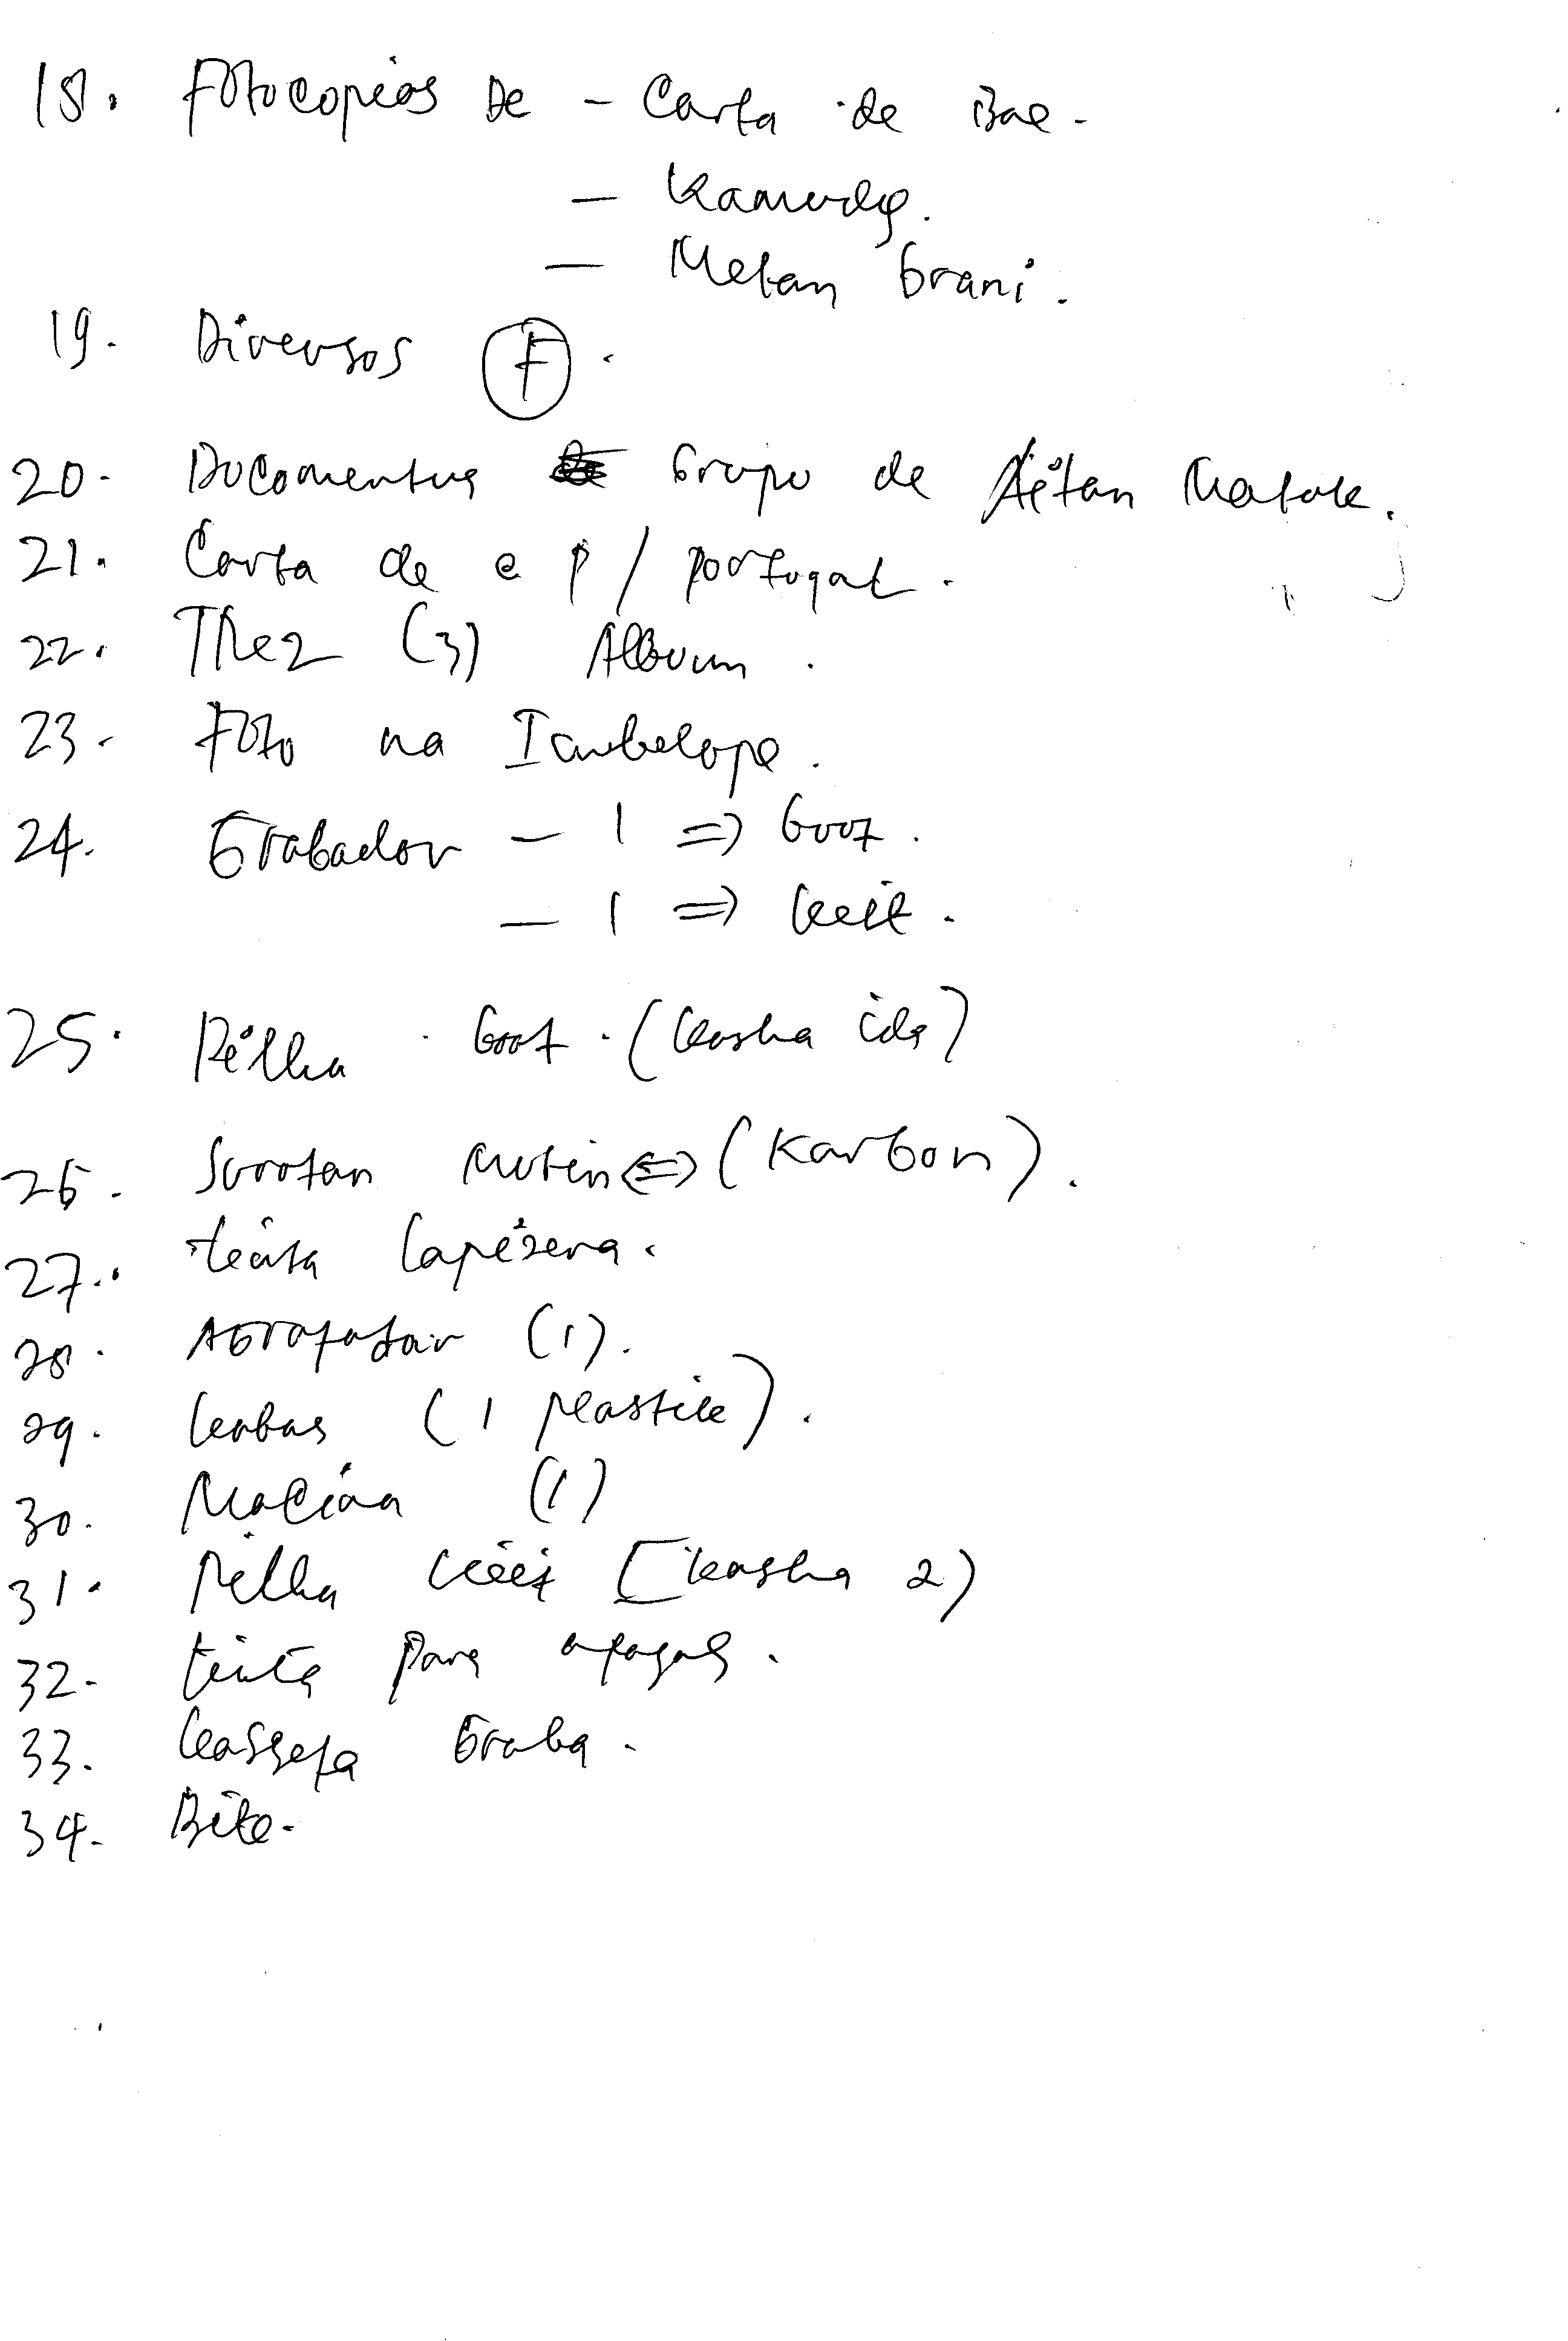 18. Fotocopias De - Carta de Bae.
- Kamudg.
- Metan Grani.
19. Diversos F.
20. Documentus Grupo de Aitan Matak.
21. Carta de e p/portugal.
22. Tkez (3) Album.
23. Foto na Imbelope.
24. Grabador - 1 => Boot.
- 1 => kiik.
25. Pilha Boot. (kasha ida)
26. Surotan Mutin <=> (Karbon).
27. tinta lapizera.
28. Agrafador (1).
29. kabas (1 plastik).
30. Malian (1)
31. Pilha kiik [kasha 2)
32. tinta para apagal.
33. kasseta Graba.
34. Bite.